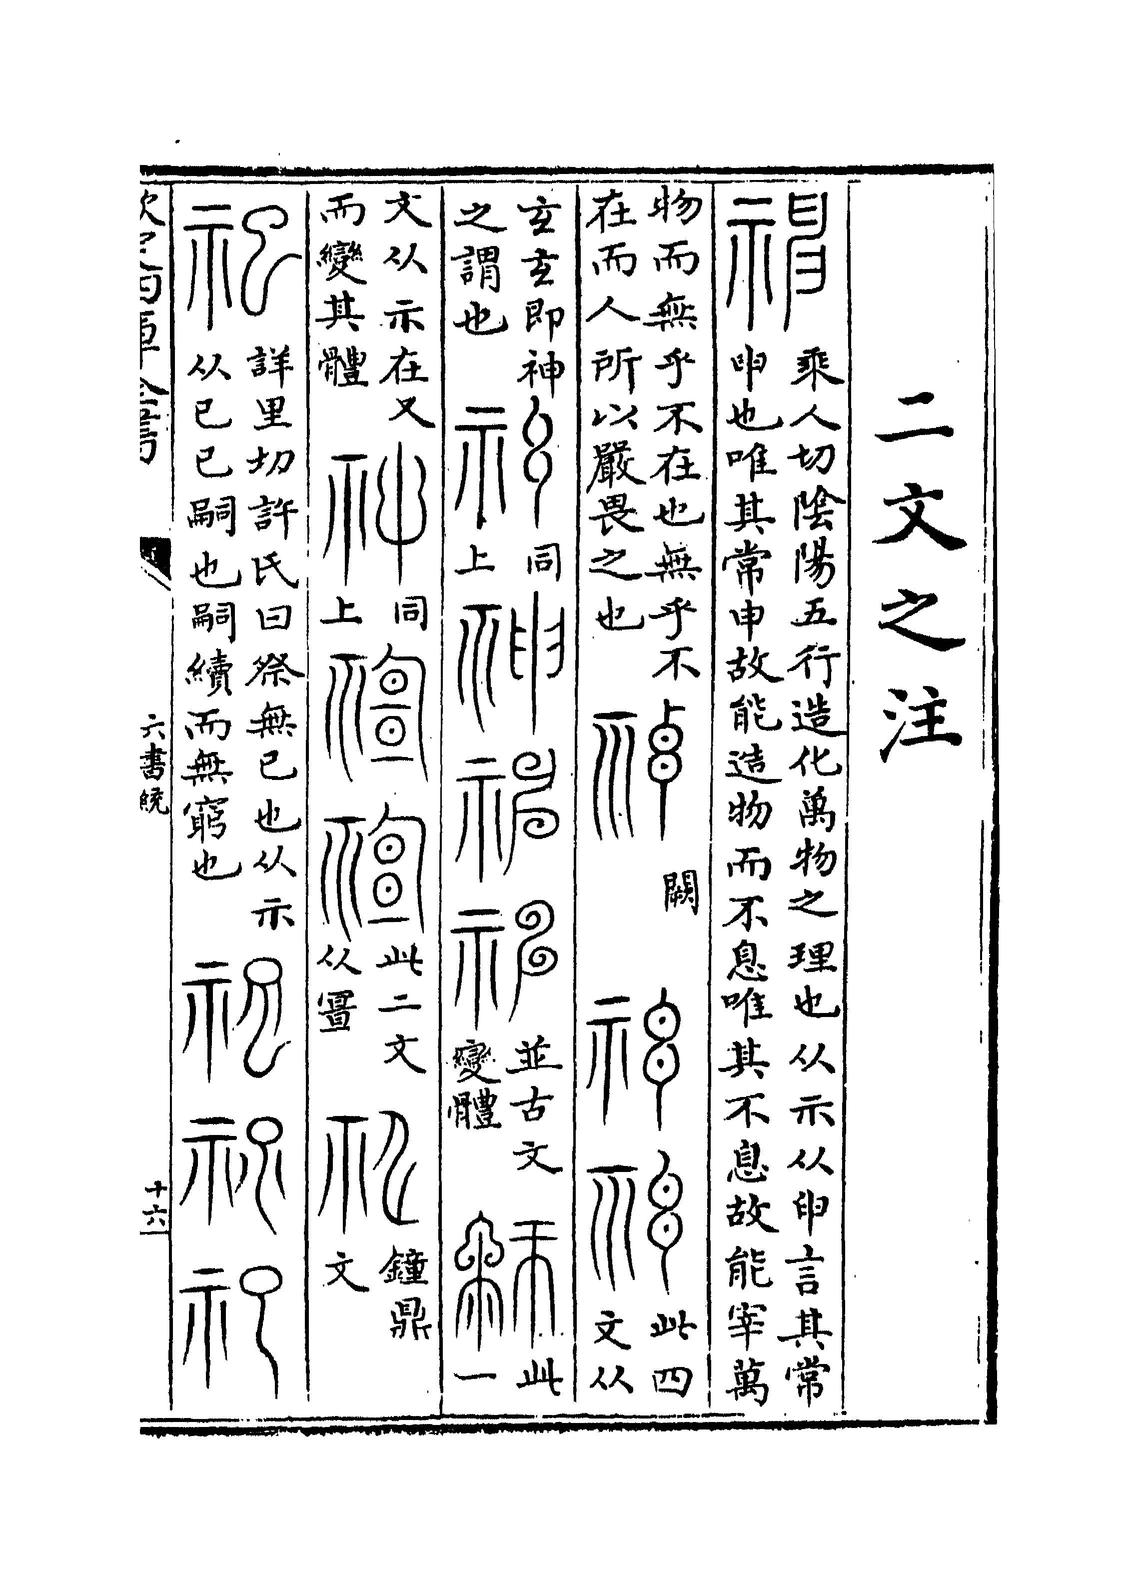 二文之注
乘人切陰陽五行造化萬物之理也从示从𦥔言其常
𦥔也唯其常申故能造物而不息唯其不息故能宰萬
物而無乎不在也無乎不
在而人所以嚴畏之也
闕
此四
文从
玄玄即神
之謂也
同
上
並古文
變體
此
一
文从示在又
而變其體
同
上
此二文
从畺
鐘鼎
文
詳里切許氏曰祭無已也从示
从已已嗣也嗣續而無窮也
欽定四庫全書
六書統
十六